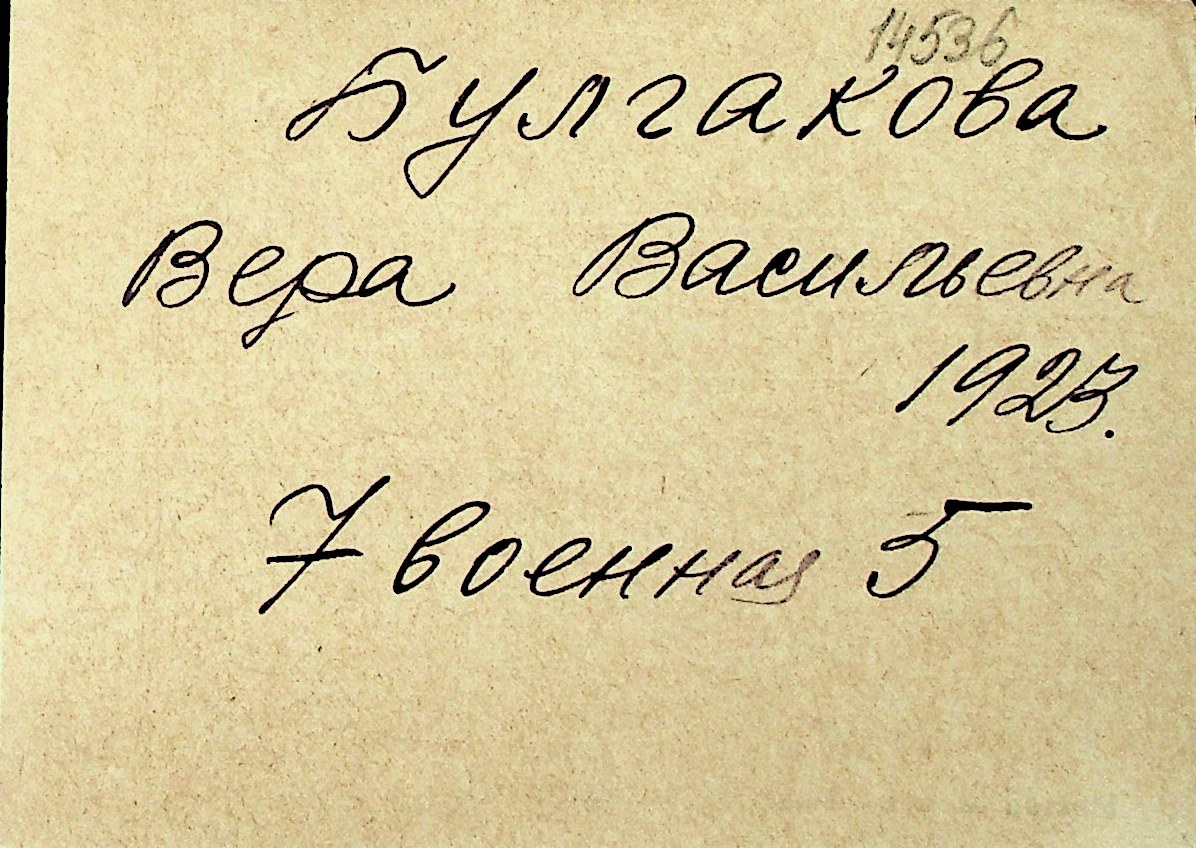 14536
Булгакова
Вера Васильевна
1923.
7 военная 5